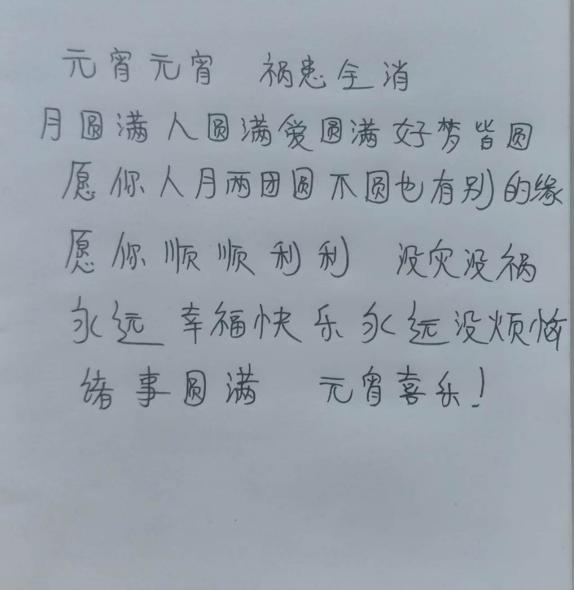 元宵元宵 祸患全消
月圆满人圆满爱圆满好梦皆圆
愿你人月两团圆不圆也有别的缘
愿你顺顺利利 没灾没祸
永远幸福快乐永远没烦恼
绪事圆满 元宵喜乐!